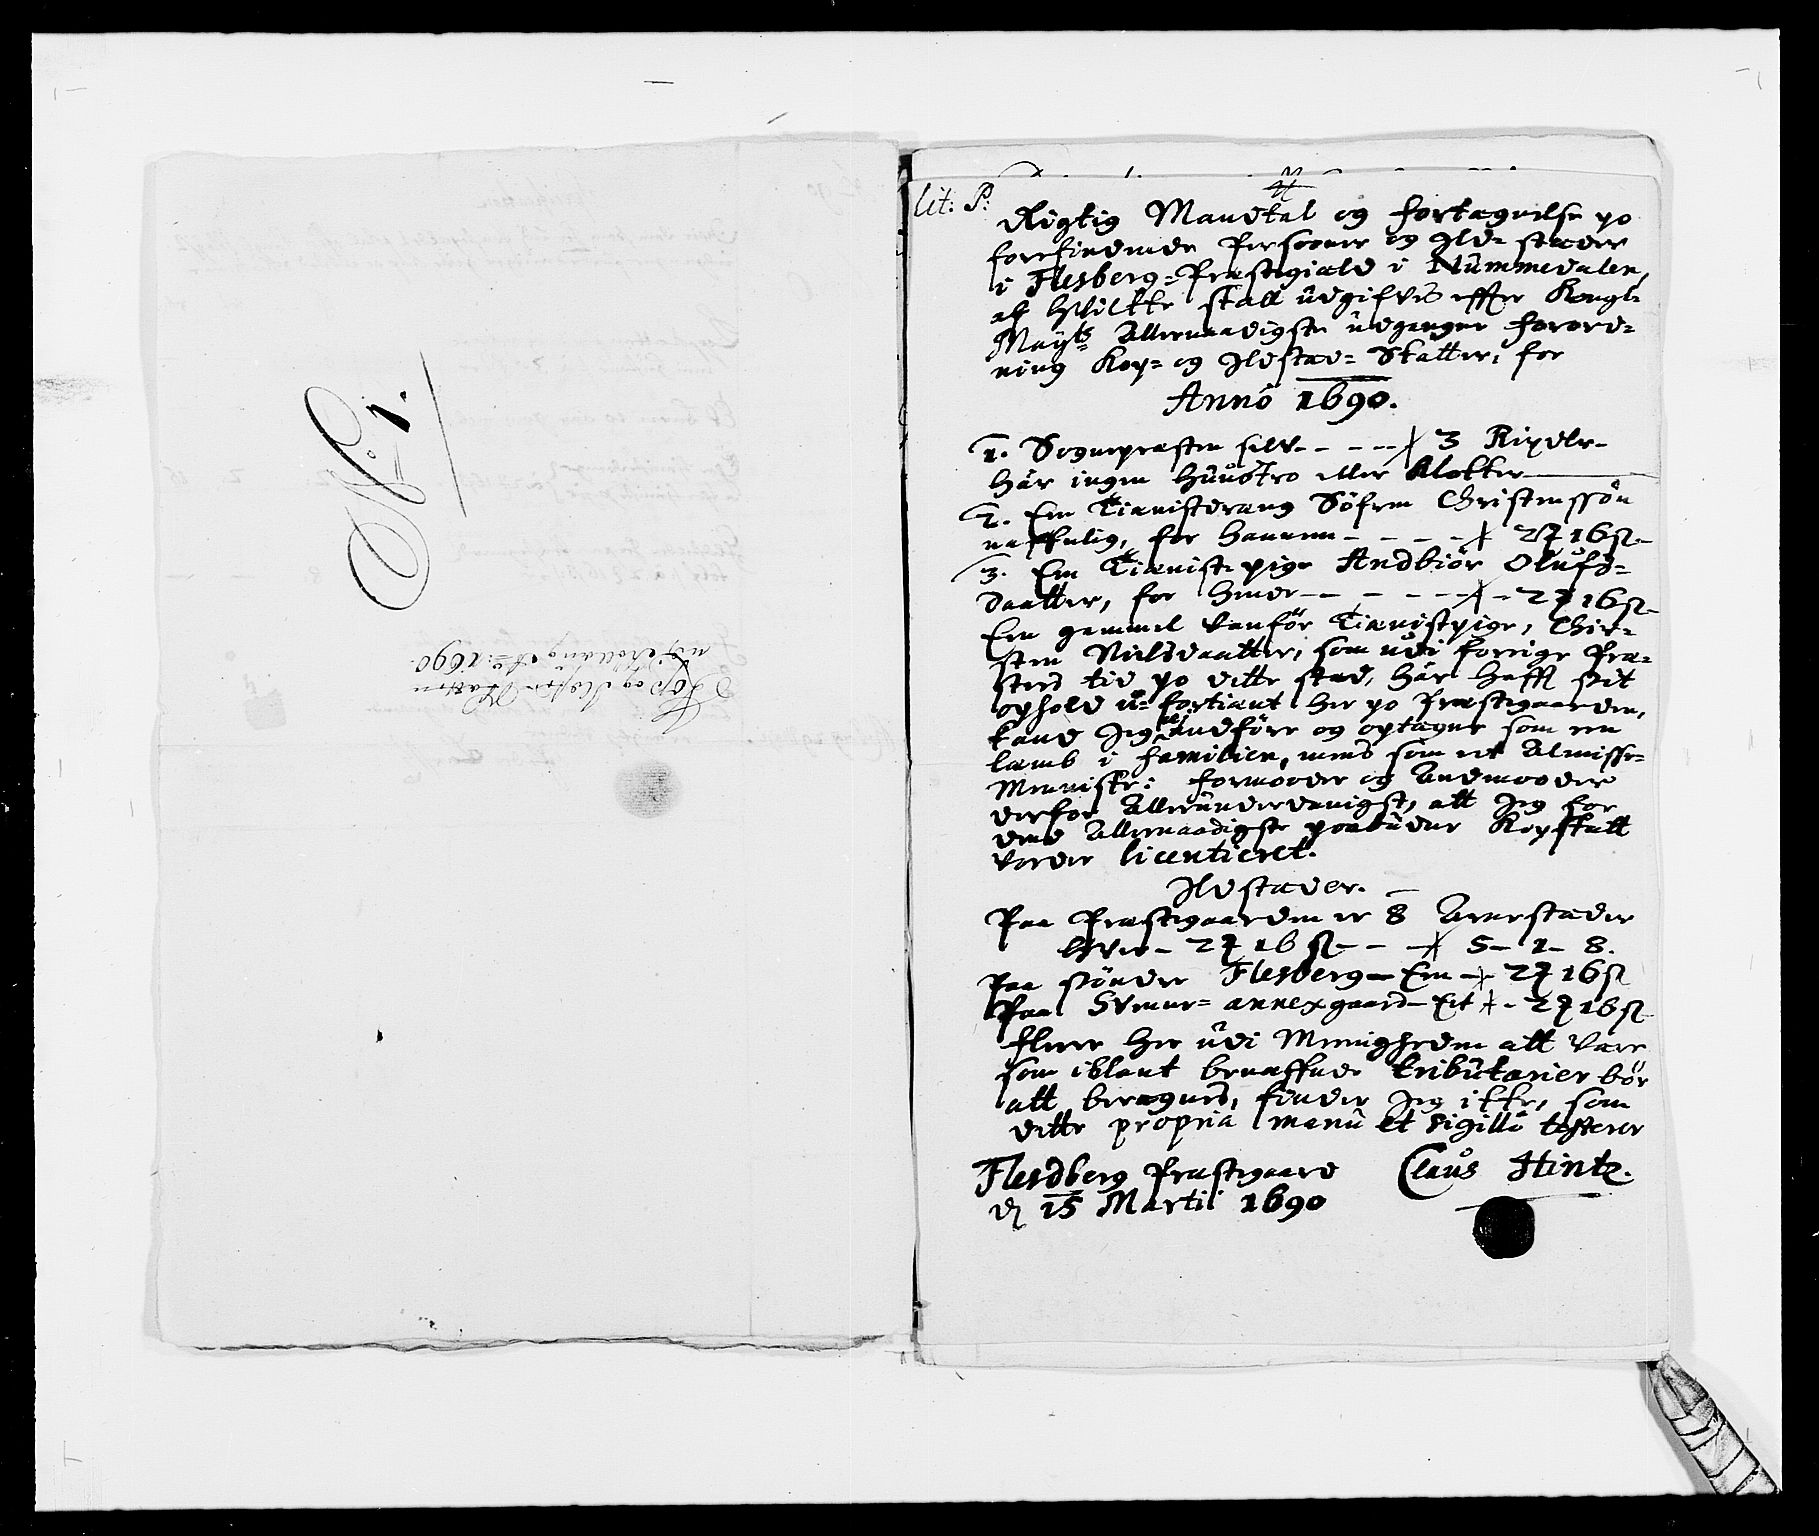 No. 1.
Kop og Ildsted Skatten
1690.
Lit: P:
Rigtig Mandtal og fortegnelse po
forefindende Personer og Ild-stæder
i Flesberg-Præstegiæld i Nummedalen,
af hvilcke skall udgifves effter Kongl:
Mayts Allernaadigste udgangne forord-
ning Kop- og Ildsted-Skatter, for
Anno 1690.
1. Sognepræsten selv - - - - 3 Rixdlr-
Här ingen huustro eller Klokker
2. Een Tieniste dreng Söfren Christenssön
for hannem - - - - 2 16 s-
3. Een Tieniste pige Andbiör Olufs-
daatter, for hender - - - - - 2 16 s-
Een gammel vanför Tienistpige, Chir-
sten Nielsdaatter, som udi forrige Præ-
stes tid po dette sted, här hafft sit
ophold u-fortient her po Præstegaarden,
kand Jeg ej andföre og optegne som en
lemb i familien, mens som et Almisse-
Menniske: formoder og Anmoder
derfor Allerunderdanigst, att Jeg for
dend Allernaadigste paabudne Kopskatt
vorder licentieret.
Ildstæder.
Paa Præstegaarden er 8 Arnestæder
hver - 2 16 s - - 5 - 1 - 8.
Paa sönder Flesberg - Een - 2 16 s
Paa Svene-annexgaard - Eet - 2 16 s
flere her udi Menigheden att være
som iblant benæffnde tributarier bör
att beregnes, finder Jeg icke, som
dette propria manu et sigillo testerer
Flesdberg Præstegaard Claus Hintz.
d 15 Martii 1690